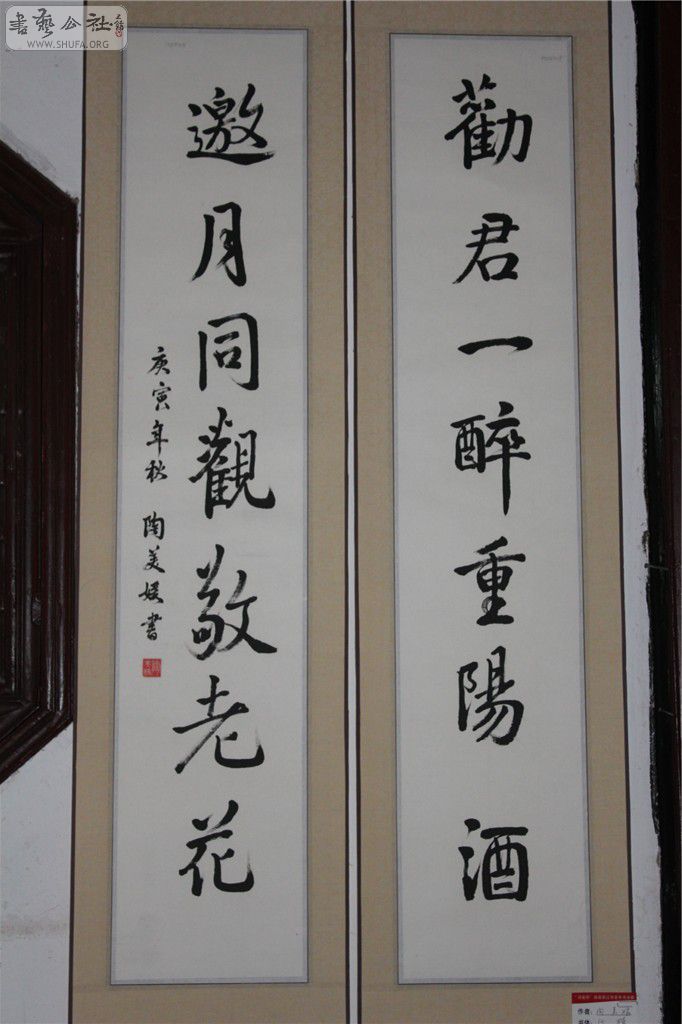 勸君一醉重陽酒
邀月同觀敬老花
庚寅年秋 陶美娱書
書藝公社
WWW.SHUFA.ORG
作者: